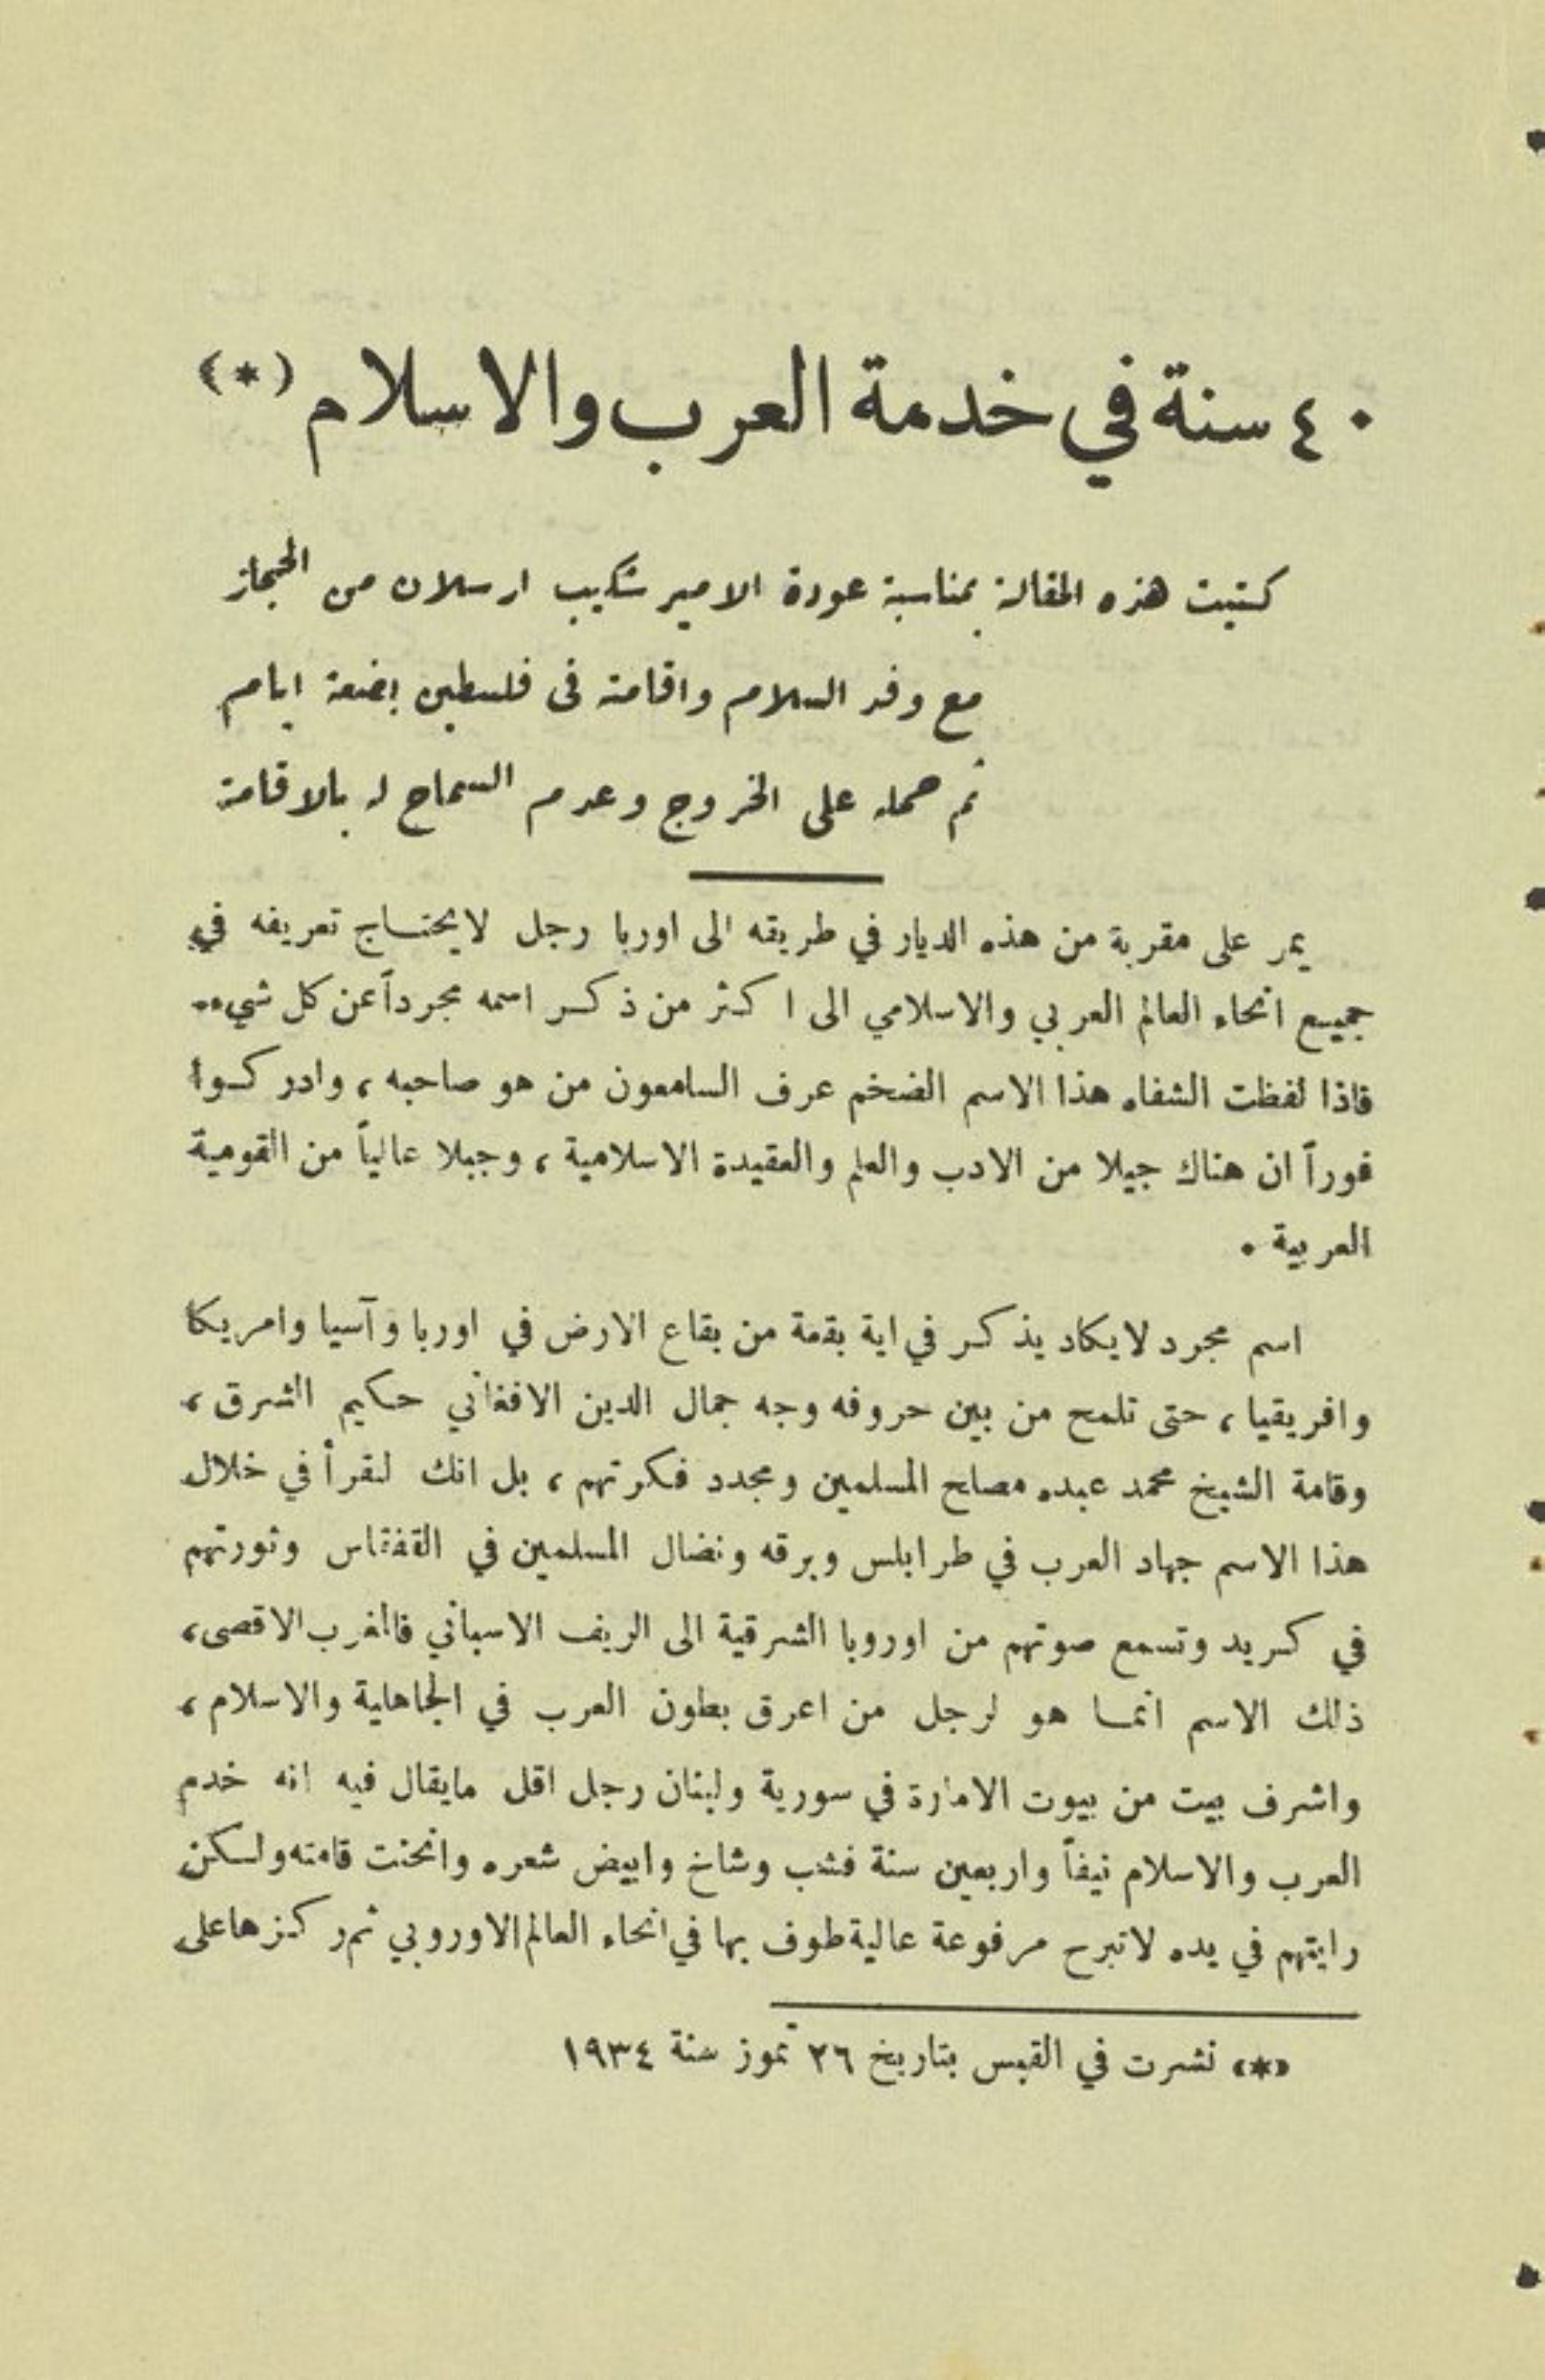 ٤٠ سنة في خدمة العرب والاسلام (*)
كتبت هذه المقالة بمناسبة عودة الامير شكيب ارسلان من الحجاز
مع وفد السلام واقامته في فلسطين بضعة ايام
ثم حمله على الخروج وعدم السماح له بالاقامة
يمر على مقربة من هذه الديار في طريقه الى اوربا رجل لايحتاج تعريفه في
جميع انحاء العالم العربي والاسلامي الى اكثر من ذكر اسمه مجرداً عن كل شيء..
فاذا لفظت الشفاه هذا الاسم الضخم عرف السامعون من هو صاحبه ، وادركوا
فوراً ان هناك جيلا من الادب والعلم والعقيدة الاسلامية ، وجبلا عالياً من القومية
العربية .
اسم مجرد لايكاد يذكر في اية بقعة من بقاع الارض في اوربا وآسيا وامريكا
وافريقيا ، حتى تلمح من بين حروفه وجه جمال الدين الافغاني حكيم الشرق ،
وقامة الشيخ محمد عبده مصلح المسلمين ومجدد فكرتهم ، بل انك لتقرأ في خلال
هذا الاسم جهاد العرب في طرابلس وبرقه ونضال المسلمين في القفقاس وثورتهم
في كريد وتسمع صوتهم من اوروبا الشرقية الى الريف الاسباني فالمغرب الاقصى ،
ذلك الاسم انما هو لرجل من اعرق بطون العرب في الجاهلية والاسلام ،
واشرف بيت من بيوت الامارة في سورية ولبنان رجل اقل مايقال فيه انه خدم
العرب والاسلام نيفاً واربعين سنة فشب وشاخ وابيض شعره وانحنت قامته ولكن
رايتهم في يده لاتبرح مرفوعة عالية طوف بها في انحاء العالم الاوروبي ثم ركزها على
«*» نشرت في القبس بتاريخ ٢٦ تموز سنة ١٩٣٤